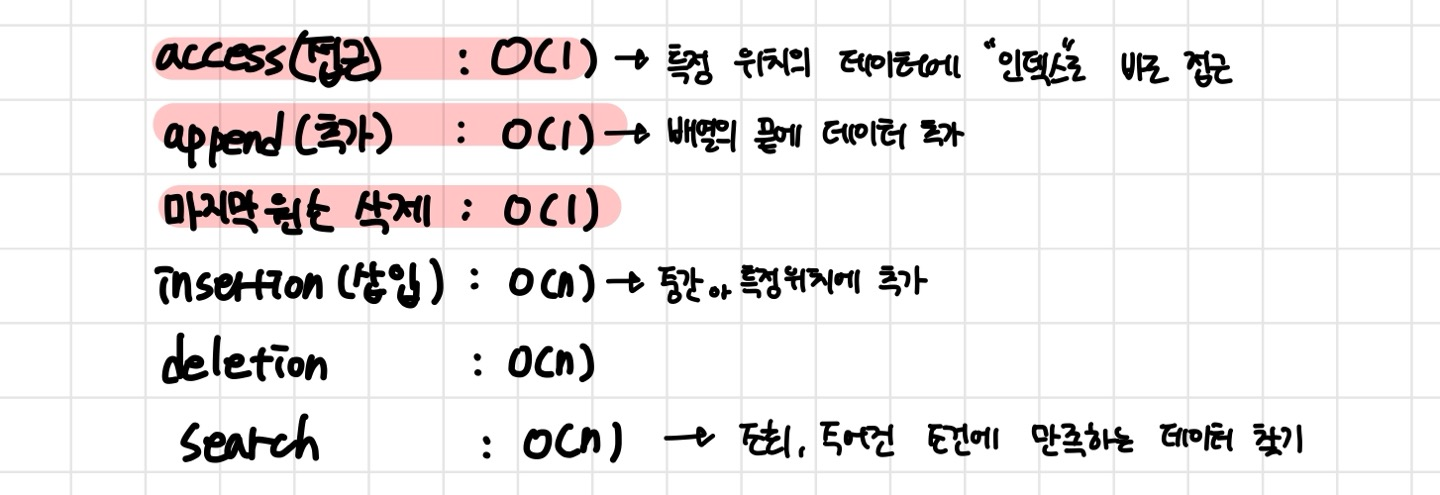 access(접근) : O(1) → 특정 위치의 데이터에 "인덱스"로 바로 접근
append(추가) : O(1) → 배열의 끝에 데이터 추가
마지막 원소 삭제 : O(1)
insertion(삽입) : O(n) → 중간, 특정위치에 추가
deletion : O(n)
search : O(n) → 조회, 주어진 조건에 만족하는 데이터 찾기